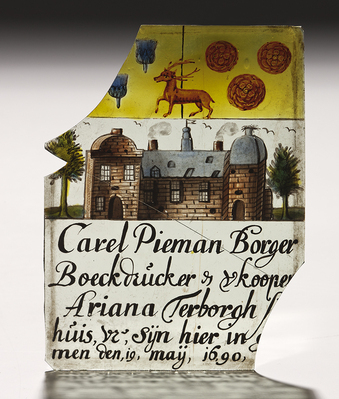 Carel Pieman Borger
Boeckdrucker & vkooper
Ariana Terborgh
huis, vr, Sijn hier in
men den, 19, maÿ, 1690,